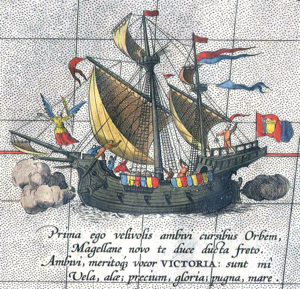 Prima ego velivolis ambivi cursibus Orbem,
Magellane novo te duce ducta freto.
Ambivi, meritoq̃ vocor VICTORIA: sunt mi
Vela, alæ; precium, gloria; pugna, mare.